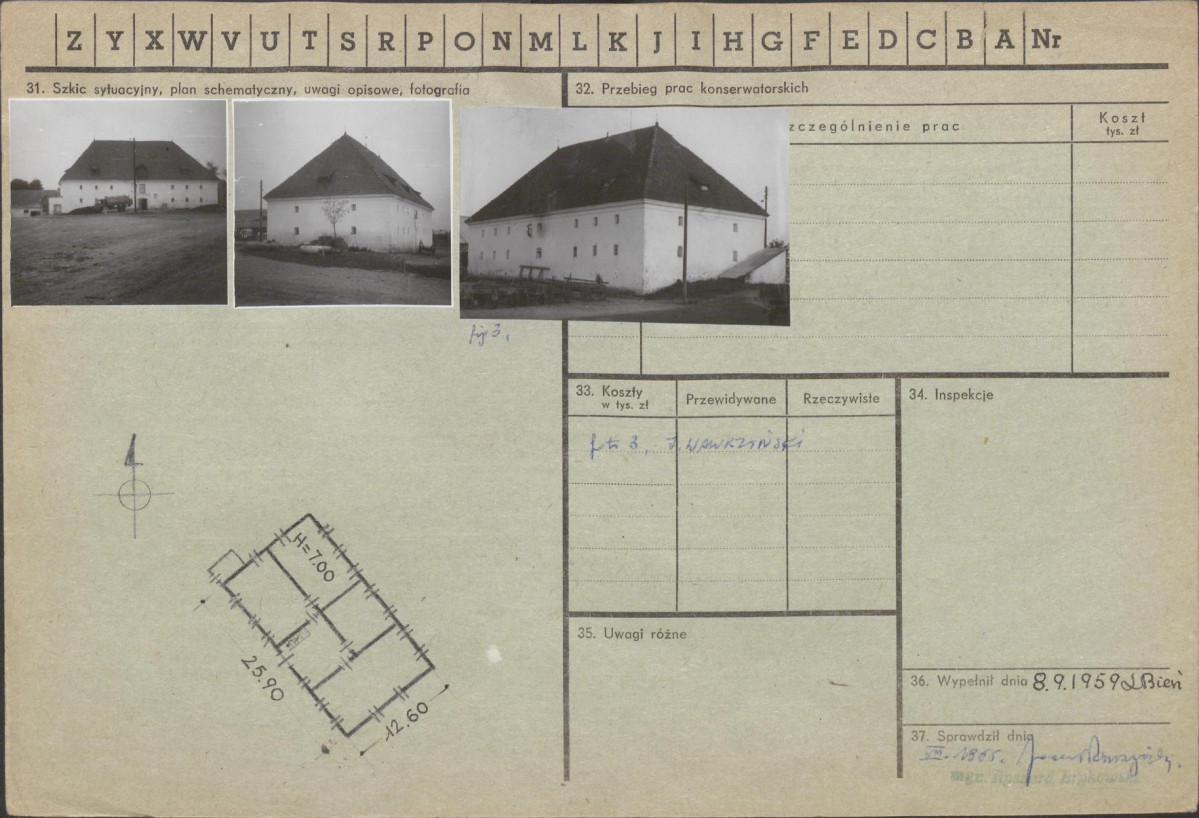 Z Y X W V U T S R P O N M L K J I H G F E D C B A Nr
31. Szkic sytuacyjny, plan schematyczny, uwagi opisowe, fotografia
32. Przebieg prac konserwatorskich
zczególnienie prac
Koszt
tys. zł
fig 3.
33. Koszty
w tys. zł
Przewidywane
Rzeczywiste
34. Inspekcje
J. WAWRZYŃSKI
H=7.00
25.90
12.60
35. Uwagi różne
36. Wypełnił dnia 8.9.1959 Bień
37. Sprawdził dnia
mgr. Ryszard